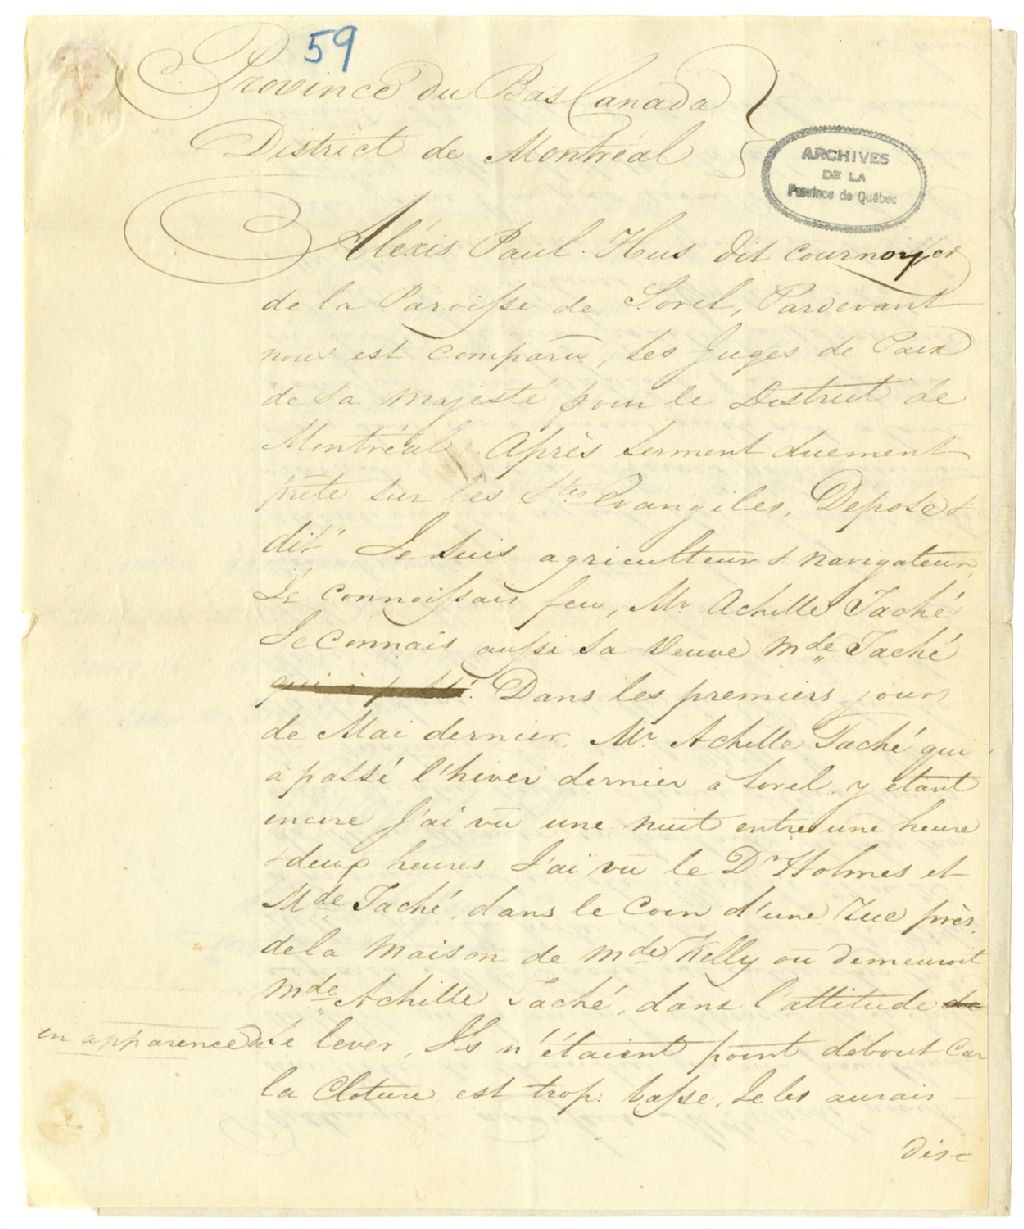 59
Province du Bas Canada
District de Montréal
ARCHIVES
DE LA
Province de Québec
Aléxis Paul Hus dit Cournoyer
de la Paroisse de Sorel, Pardevant
nous est comparu, les Juges de Paix
de Sa Majesté pour le District de
Montréal Après Serment duement
prêté sur les Stes Evangiles, Depose &
dit" Je suis agriculteur & navigateur,
Je connoissais feu, Mr Achille Taché
Je connais aussi sa veuve Mde Taché
Dans les premiers jours
de Mai dernier, Mr Achille Taché qui
à passé l'hiver dernier à Sorel, y étant
encore J'ai vû une nuit entre une heure
& deux heures J'ai vû le Dr Holmes et
Mde Taché, dans le coin d'une Rue près,
de la maison de Mde Kelly où demeuroit
Mde Achille Taché, dans l'attitude de
en apparence de se lever, Ils n'étaient point debout Car
la Cloture est trop basse, Je les aurais
dis